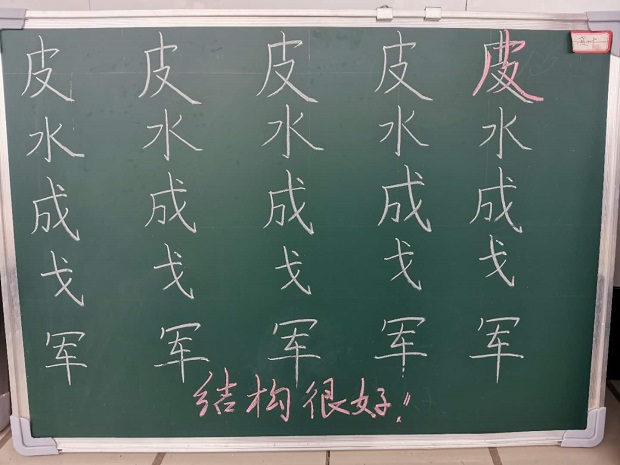 皮 皮 皮 皮 皮
水 水 水 水 水
成 成 成 成 成
戈 戈 戈 戈 戈
军 军 军 军 军
结构很好!!